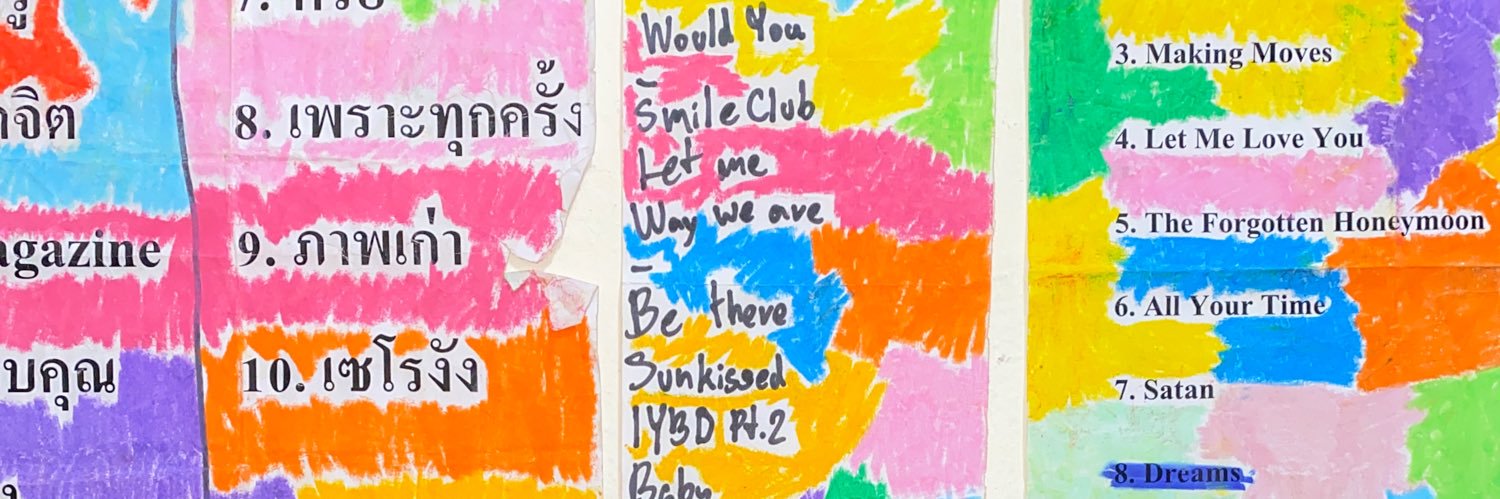 agazine
บคุณ
8. เพราะทุกครั้ง
9. ภาพเก่า
10. เซโรงัง
Would You
Smile Club
Let me
Way we are
Be there
Sunkissed
IYBD Pt.2
Baby
3. Making Moves
4. Let Me Love You
5. The Forgotten Honeymoon
6. All Your Time
7. Satan
8. Dreams